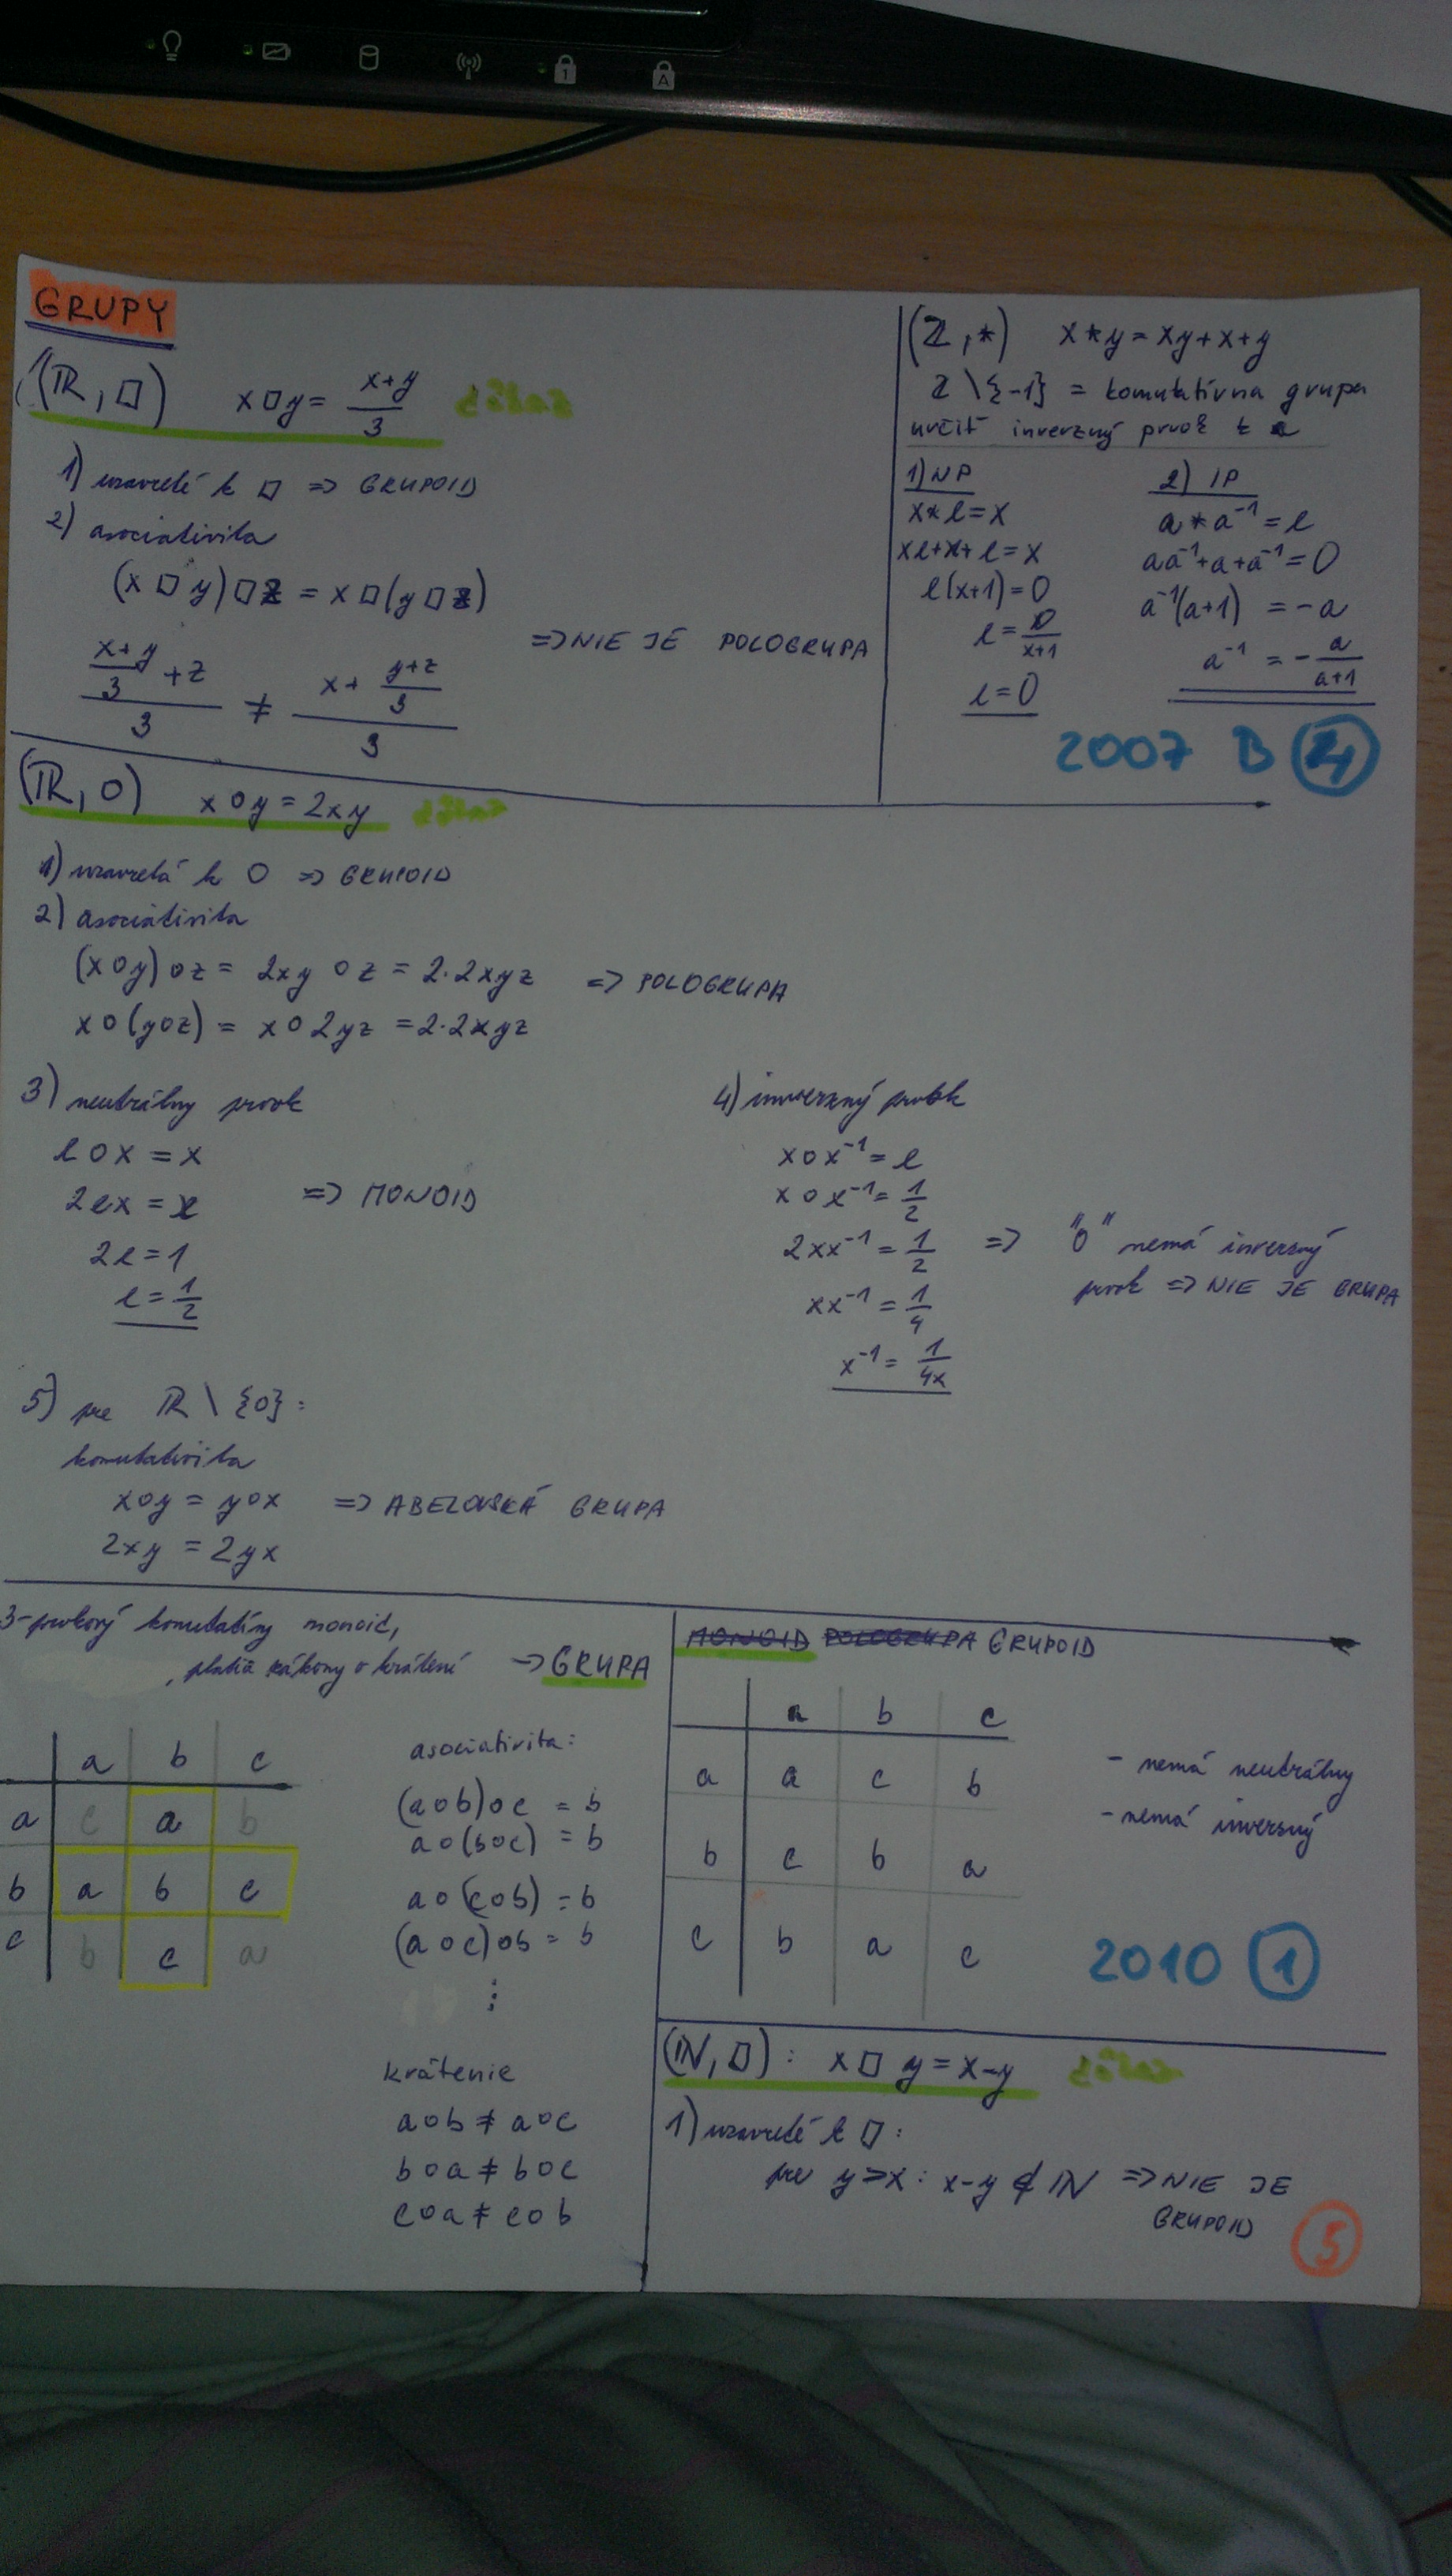 GRUPY
(ℝ, □) x □ y = (x+y)/3
1) uzavreté k □ => GRUPOID
2) asociativita
(x □ y) □ z = x □ (y □ z)
((x+y)/3 + z)/3 ≠ (x + (y+z)/3)/3
=> NIE JE POLOGRUPA
(Z, *) x*y = xy+x+y
Z \ {-1} = komutatívna grupa
určiť inverzný prvok k a
1) NP
x*e=x
xe+x+e=x
e(x+1)=0
e = 0/(x+1)
e=0
2) IP
a*a⁻¹=e
aa⁻¹+a+a⁻¹=0
a⁻¹(a+1) = -a
a⁻¹ = -a/(a+1)
2007 B
(ℝ, o) x o y = 2xy
1) uzavretá k o => GRUPOID
2) asociativita
(x o y) o z = 2xy o z = 2·2xyz => POLOGRUPA
x o (y o z) = x o 2yz = 2·2xyz
3) neutrálny prvok
e o x = x
2ex = x => MONOID
2e = 1
e = 1/2
4) inverzný prvok
x o x⁻¹ = e
x o x⁻¹ = 1/2
2xx⁻¹ = 1/2 => "0" nemá inverzný
prvok => NIE JE GRUPA
xx⁻¹ = 1/4
x⁻¹ = 1/4x
5) pre ℝ \ {0}:
komutativita
x o y = y o x => ABELOVSKÁ GRUPA
2xy = 2yx
3-prvkový komutatívny monoid,
, platia zákony o krátení -> GRUPA
a b c
a c a b
b a b c
c b c a
asociativita:
(a o b) o c = b
a o (b o c) = b
a o (c o b) = b
(a o c) o b = b
⋮
krátenie
a o b ≠ a o c
b o a ≠ b o c
c o a ≠ c o b
MONOID POLOGRUPA GRUPOID
a b c
a a c b
b c b a
c b a c
- nemá neutrálny
- nemá inverzný
2010 1
(ℕ, □): x □ y = x-y
1) uzavreté k □:
pre y>x: x-y ∉ ℕ => NIE JE
GRUPOID
5